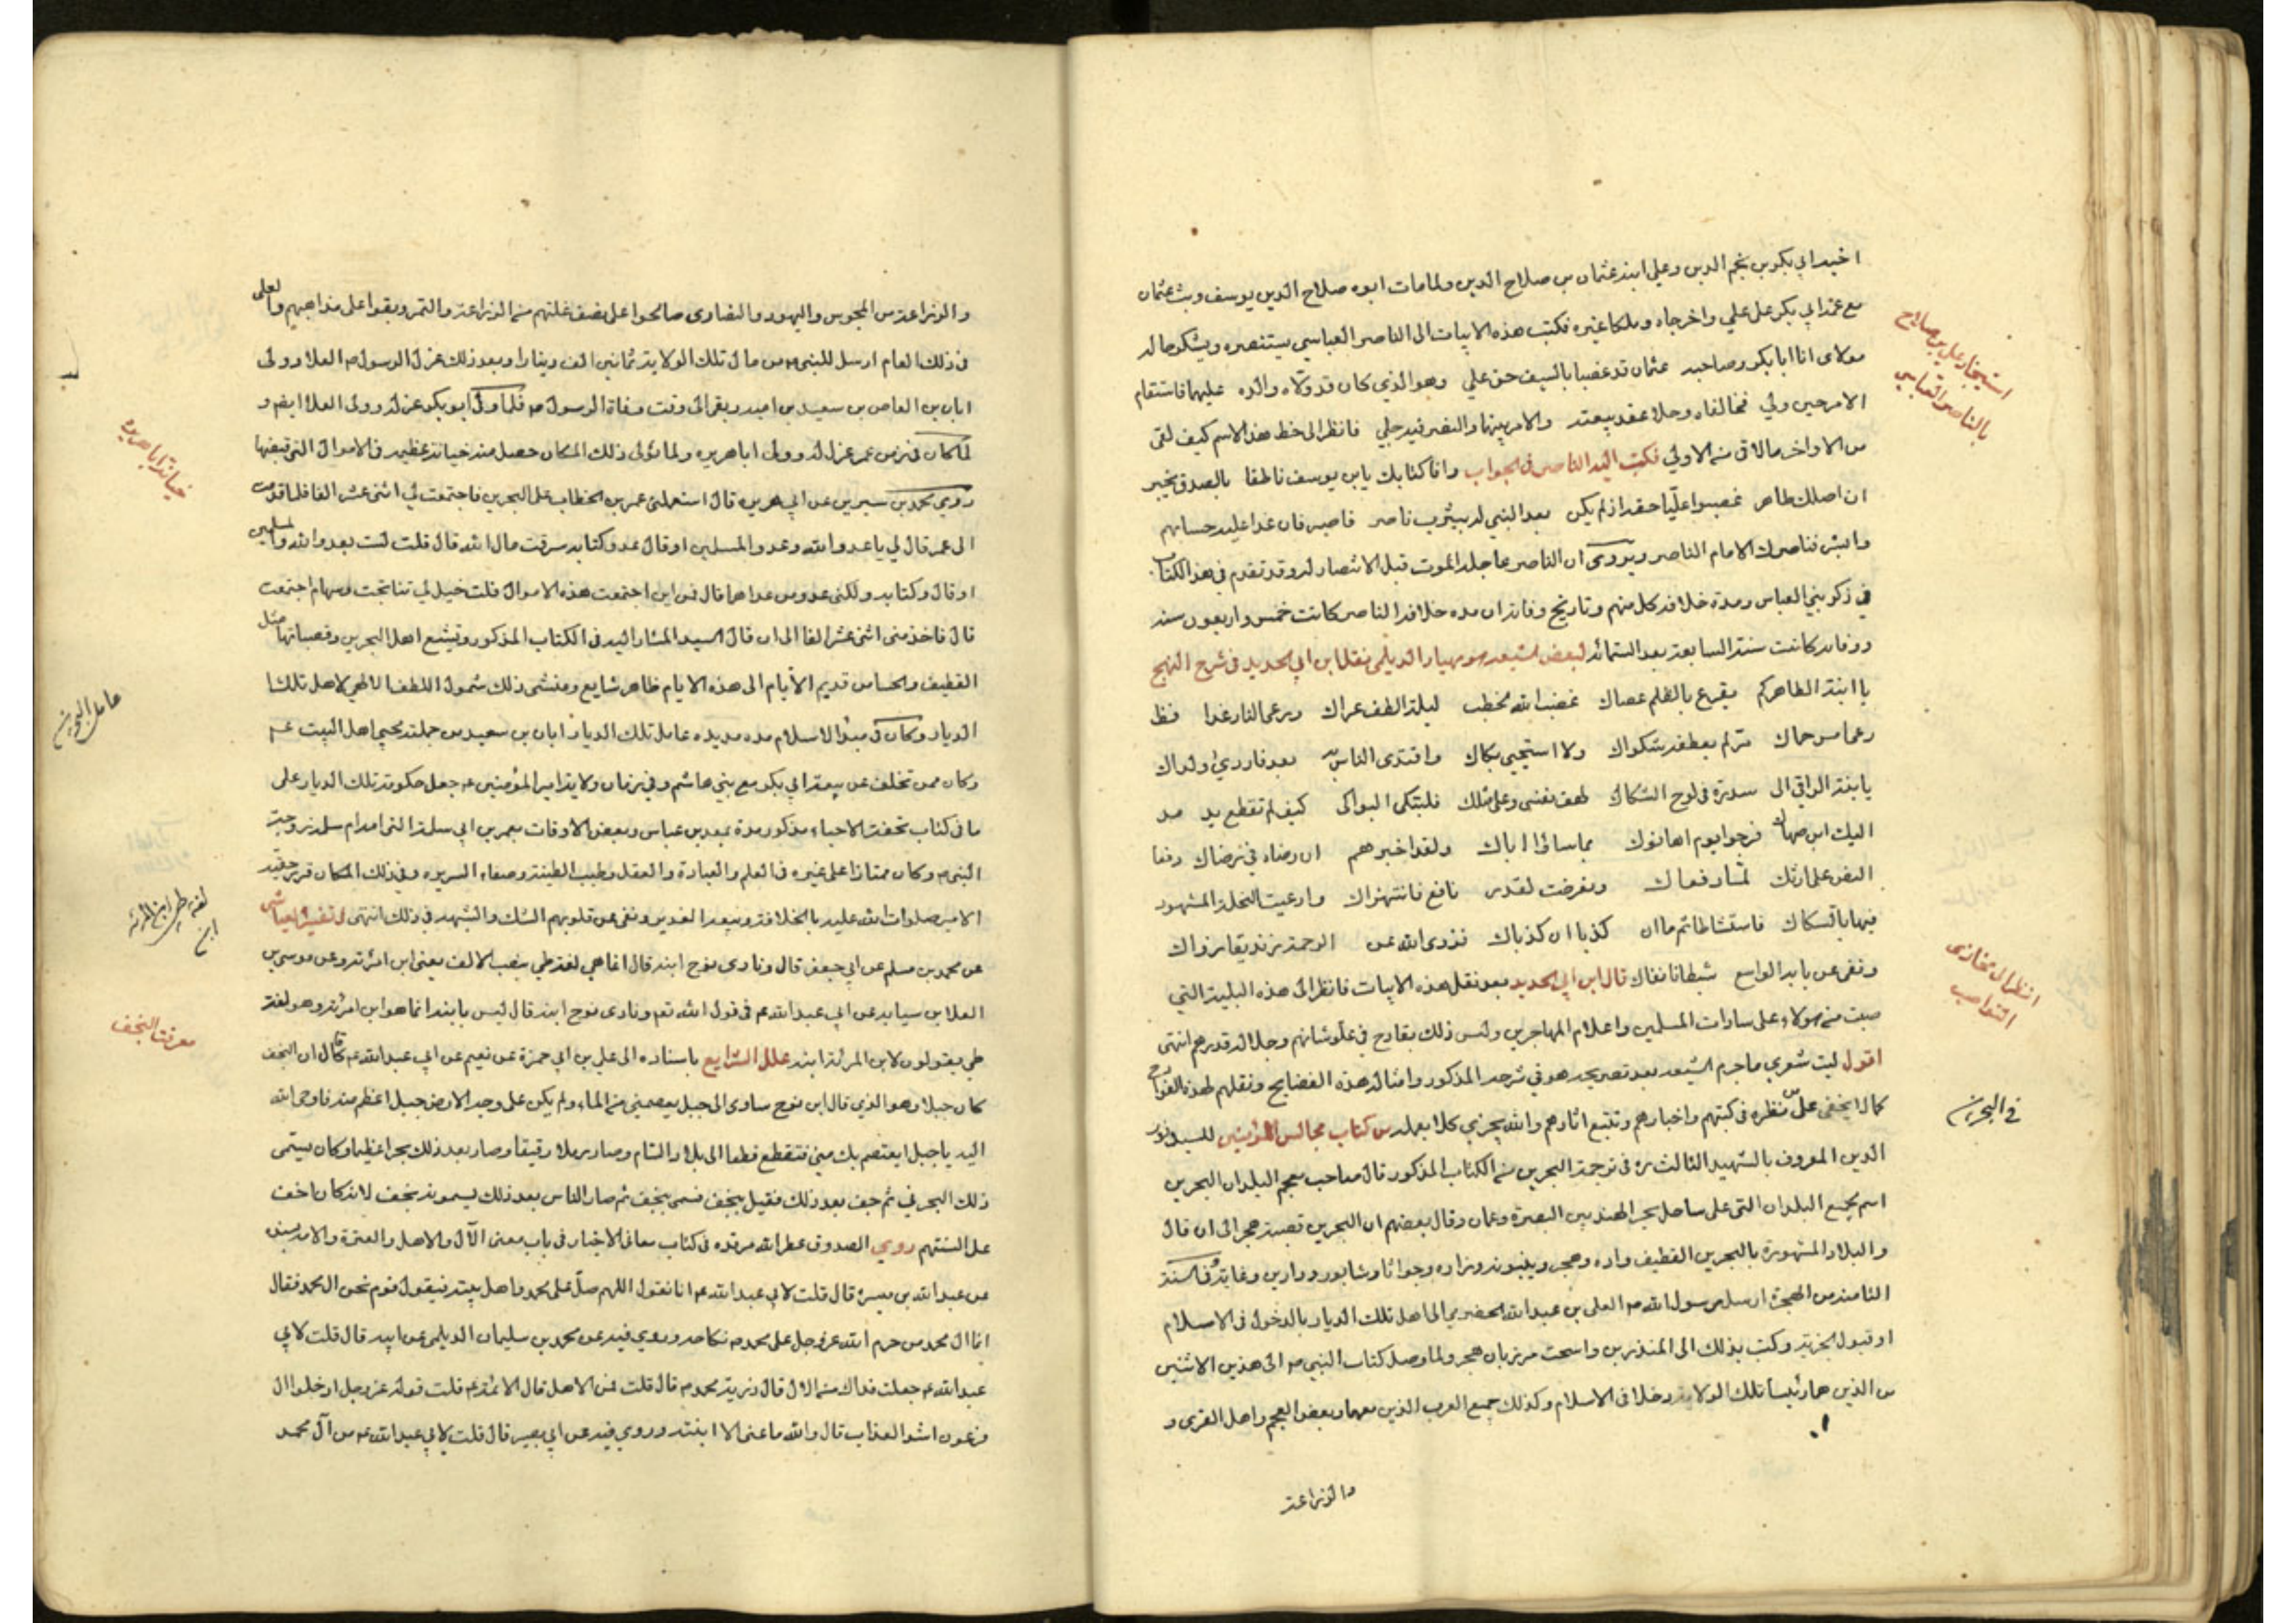 اخيه ابي بكر بن نجم الدين وعلي ابنه عثمان بن صلاح الدين ولما مات ابوه صلاح الدين يوسف وثب عثمان
مع عمه ابي بكر على علي واخرجاه وملكا غيره فكتب هذه الابيات الى الناصر العباسي يستنصره ويشكو حاله
مولاى انا ابا بكر وصاحبه عثمان قد غصبا بالسيف حق علي وهو الذي كان قد ولاه والده عليهما فاستقام
الامر حين ولي فخالفاه وحلا عقد بيعته والامر بينهما والنص فيه جلي فانظر الى حظ هذا الاسم كيف لقى
من الاواخر ما لاقى من الاولي فكتب اليه الناصر في الجواب وافا كتابك يابن يوسف ناطقا بالصدق يخبر
ان اصلك طاهر غصبوا عليّا حقه اذ لم يكن بعد النبي له بيثرب ناصر فاصبر فان غدا عليه حسابهم
وابشر فناصرك الامام الناصر ويروى ان الناصر عاجله الموت قبل الانتصار له وقد تقدم في هذا الكتاب
في ذكر بني العباس ومدة خلافة كل منهم وتاريخ وفاته ان مده خلافة الناصر كانت خمس واربعون سنه
ووفاته كانت سنة السابعة بعد الستمائه لبعض الشيعه هو مهيار الديلمي نقلها ابن ابي الحديد في شرح النهج
يا ابنة الطاهر كم يقرع بالظلم عصاك غضب الله لخطب ليلة الطف عراك ورعى النار غدا قط
رعى امس حماك مر لم يعطفه شكواك ولا استحيى بكاك واقتدى الناس به بعد فاردي ولداك
يا بنة الراقي الى سدرة في لوح السكاك لهف نفسى وعلى مثلك فلتبكى البواكى كيف لم تقطع يد مد
اليك ابن صهاك فرحوا يوم اهانوك بما ساءا اباك ولقد اخبرهم ان رضاه في رضاك دفعا
النص على ارثك لما دفعاك وتعرضت لقدر تافع فانتهزاك وادعيت النحلة المشهود
فيها بالصكاك فاستشاطا ثم ما ان كذبا ان كذباك فزوى الله عن الرحمة زنديقا زواك
ونفى عن بابه الواسع شيطانا نفاك قال ابن ابي الحديد بعد نقل هذه الابيات فانظر الى هذه البلية التي
صبت من هولاء على سادات المسلمين واعلام المهاجرين وليس ذلك بقادح في علو شانهم وجلاله قدرهم انتهى
اقول ليت شعري ما جرم الشيعه بعد تصريحه هو في شرحه المذكور وامثاله هذه الفضايح ونقلهم لهذه القوادح
كما لا يخفى على من نظره في كتبهم واخبارهم وتتبع اثارهم والله يجزي كلا بعمله من كتاب مجالس المؤمنين للسيد نور
الدين المعروف بالشهيد الثالث ره في ترجمة البحرين من الكتاب المذكور قال صاحب معجم البلدان البحرين
اسم لجميع البلدان التى على ساحل بحر الهند بين البصرة وعمان وقال بعضهم ان البحرين قصبة هجر الى ان قال
والبلاد المشهورة بالبحرين القطيف واره وهجر وبينونه وزاره وجواثا وشابور ودارين وغابة وفي سنة
الثامنه من الهجرة ارسل رسول الله ص العلى بن عبد الله الحضرمي الى اهل تلك الديار بالدخول في الاسلام
او قبول الجزية وكتب بذلك الى المنذرين واسحت مرزبان هجر ولما وصل كتاب النبي ص الى هذين الاثنين
من الذين هما رئيسا تلك الولاية دخلا في الاسلام وكذلك جميع العرب الذين معهما وبعض العجم واهل القرى و
والزراعة
استيجار علي بن صلاح
بالناصر العباسي
انظر الى مخازى
النواصب
في البحرين
والزراعة من المجوس واليهود والنصارى صالحوا على نصف غلتهم من الزراعة والتمر وبقوا على مذاهبهم والعلى
في ذلك العام ارسل للنبي ص من مال تلك الولاية ثمانين الف دينارا وبعد ذلك عزل الرسول ص العلا وولى
ابان بن العاص بن سعيد بن اميه وبقى الى وقت وفاة الرسول ص فلما ولى ابو بكر عزله وولى العلا ايضم و
لما كان في زمن عمر عزل له وولى ابا هريره ولما تولى ذلك المكان حصل منه خيانة عظيمه في الاموال التى قبضها
روي محمد بن سيرين عن ابي هريره قال استعملنى عمر بن الخطاب على البحرين فاجتمعت لي اثنى عشر الفا فلما قدمت
الى عمر قال لي يا عدو الله وعدو المسلمين او قال عدو كتابه سرقت مال الله قال قلت لست بعدو الله والمسلمين
او قال وكتابه ولكنى عدو من عداهما قال فمن اين اجتمعت هذه الاموال قلت خيل لي تناتجت وسهام اجتمعت
قال فاخذ منى اثنى عشر الفا الى ان قال السيد المشار اليه في الكتاب المذكور وتشيع اهل البحرين وقصباتها مثل
القطيف والحسا من قديم الأيام الى هذه الايام ظاهر شايع ومنشى ذلك شمول اللطف الالهي لاهل تلك
الديار وكان في مبدا الاسلام مده مديده عامل تلك الديار ابان بن سعيد من جملة محبي اهل البيت عم
وكان ممن تخلف عن بيعة ابي بكر مع بني هاشم وفي زمان ولاية امير المؤمنين عم جعل حكومة تلك الديار على
ما في كتاب تحفة الاحباء مذكور مدة بمعبد بن عباس وبعض الاوقات بعمر بن ابي سلمة التى امه ام سلمه زوجة
النبي ص وكان ممتازا على غيره في العلم والعبادة والعقل وطيب الطينة وصفاء السريره وفي ذلك المكان قرر حقيه
الامير صلوات الله عليه بالخلافة وبيعة الغدير ونفى عن قلوبهم الشك والشبهه في ذلك انتهى في تفسير العياشى
عن محمد بن مسلم عن ابي جعفر قال ونادى نوح ابنه قال انما هي لغة طي بنصب الالف يعنى ابن امرئته وعن موسى بن
العلا بن سيابه عن ابي عبد الله عم في قول الله تعم ونادى نوح ابنه قال ليس بابنه انما هو ابن امرئته وهو لغة
طي يقولون لابن المرئة ابنه علل الشرايع باسناده الى علي بن ابي حمزة عن نعيم عن ابي عبد الله عم قال ان النجف
كان جبلا وهو الذي قال ابن نوح ساوى الى جبل يعصمني من الماء ولم يكن على وجه الارض جبل اعظم منه فاوحى الله
اليه يا جبل ايعتصم بك مني فتقطع قطعا الى بلاد الشام وصار رملا رقيقا وصار بعد ذلك بحرا عظيما وكان يسمى
ذلك البحر ني ثم جف بعد ذلك فقيل ني جف فسمى بنجف ثم صار الناس بعد ذلك يسمونه نجف لانه كان اخف
على السنتهم روي الصدوق عطر الله مرقده في كتاب معانى الاخبار في باب معنى الآل والاهل والعترة والامه بسنده
عن عبد الله بن ميسرة قال قلت لابي عبد الله عم انا نقول اللهم صلّ على محمد واهل بيته فيقول قوم نحن ال محمد فقال
انما ال محمد من حرم الله عز وجل على محمد ص نكاحه وروي فيه عن محمد بن سليمان الديلمي عن ابيه قال قلت لابي
عبد الله عم جعلت فداك من الال قال ذرية محمد ص قال قلت فمن الاهل قال الائمة عم قلت قوله عز وجل ادخلوا ال
فرعون اشد العذاب قال والله ما عنى الا ابنته وروي فيه عن ابي بصير قال قلت لابي عبد الله عم من آل محمد
خيانة ابا هريره
عامل البحرين
لغة طي ابن المرئه
ابن
معرفة النجف